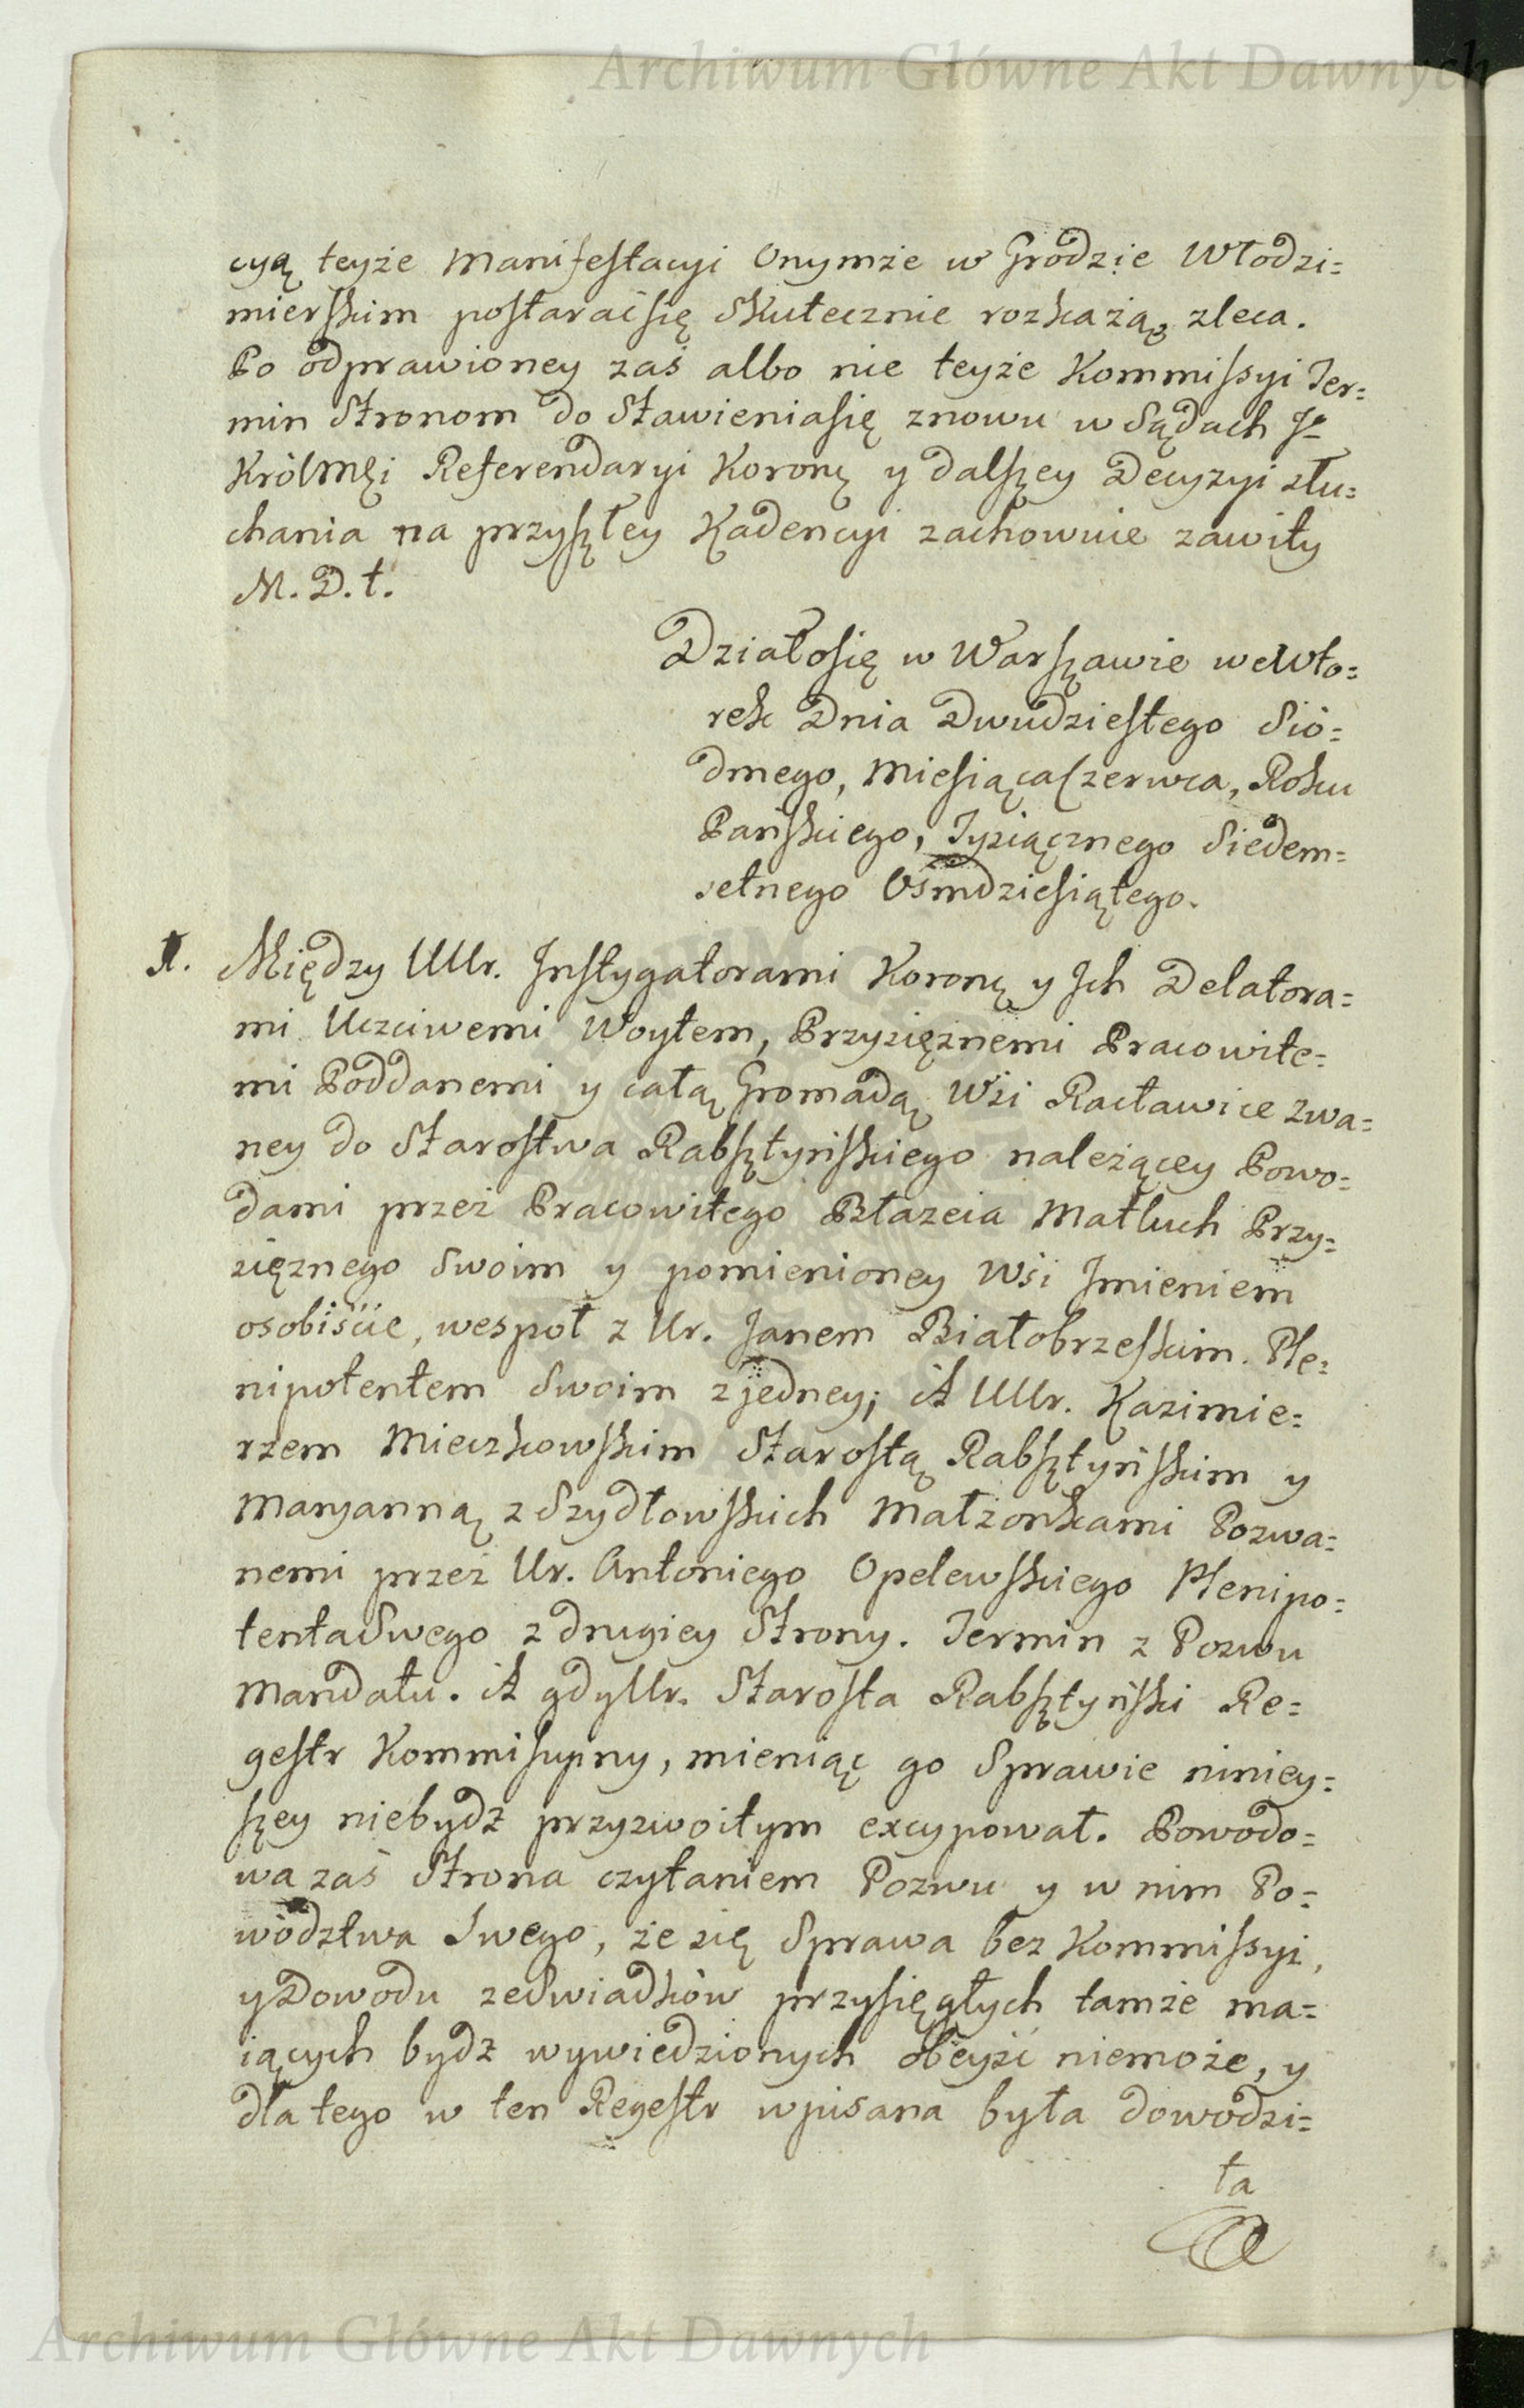 Archiwum Główne Akt Dawnych
cyą teyże Manifestacyi Onymże w Grodzie Włodzi=
mierskim postaraćsię skutecznie rozkażą, zleca.
Po odprawioney zaś albo nie teyże Kommissyi Ter=
min Stronom do Stawieniasię znowu w Sądach Jº
KrólMęi Referendaryi Koronę y dalszey Decyzyi słu=
chania na przyszłey Kadencyi zachownie zawiły
M. D. t.
Działosię w Warszawie weWto=
rek Dnia Dwudziestego Sió=
dmego, Miesiąca Czerwca, Roku
Pańskiego, Tysiącznego Siedem=
setnego Ośmdziesiątego.
1. Między UUr. Instygatorami Koronę y Ich Delatora=
mi Uczciwemi Woytem, Przysiężnemi Pracowite=
mi Poddanemi y całą Gromadą Wsi Racławice zwa=
ney do Starostwa Rabsztyńskiego należącey Powo=
dami przez Pracowitego Błazeia Małuch Przy=
siężnego Swoim y pomienioney Wsi Imieniem
osobiście, wespoł z Ur. Janem Białobrzeskim. Ple=
nipotentem Swoim z jedney; A UUr. Kazimie=
rzem Mieczkowskim Starostą Rabsztyńskim y
Maryanną z Szydłowskich Małżonkami Pozwa=
nemi przez Ur. Antoniego Opelewskiego Plenipo=
tentaSwego z drugiey Strony. Termin z Pozwu
Mandatu. A gdyUr. Starosta Rabsztyński Re=
gestr Kommissyiny, mieniąc go Sprawie niniey=
szey niebydź przyzwoitym excypował. Powodo=
wa zaś Strona czytaniem Pozwu y w nim Po=
wództwa Swego, że się Sprawa bez Kommissyi,
yDowodu zeSwiadków przysięgłych tamże ma=
iących bydź wywiedzionych obeyść niemoże, y
dla tego w ten Regestr wpisana była dowodzi=
ła
Archiwum Główne Akt Dawnych